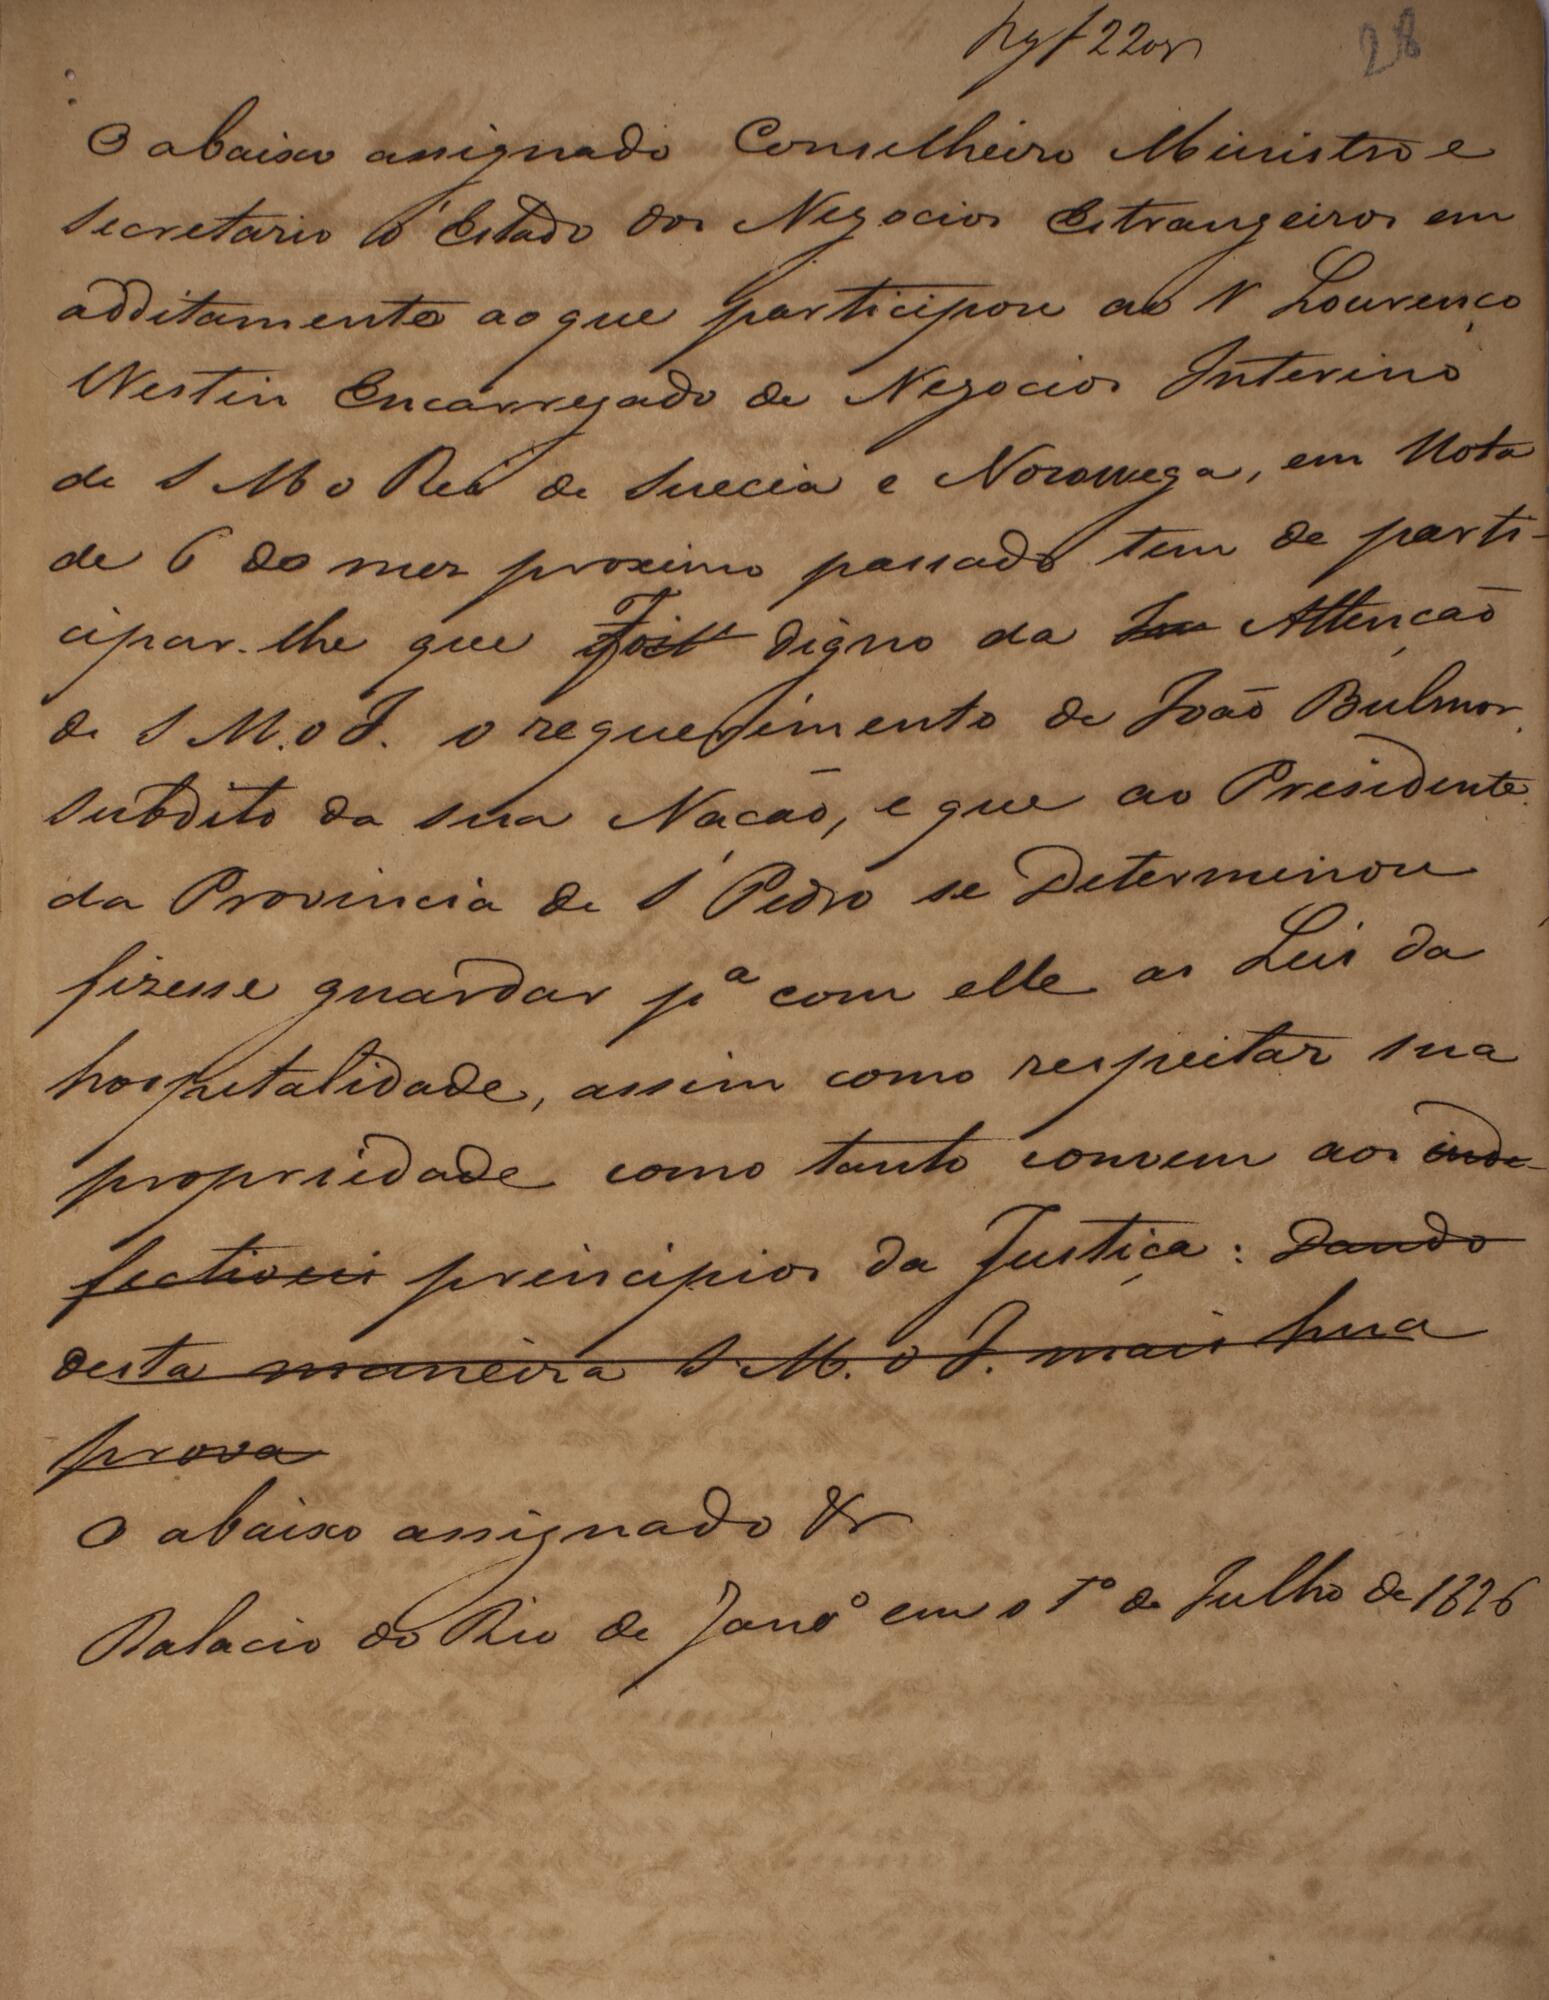 28
O abaixo assignado Conselheiro Ministro e
Secretario d'Estado dos Negocios Estrangeiros em
additamento ao que participou ao Sr Lourenço
Westin Encarregado de Negocios Interino
de S M o Rei de Suecia e Norowega, em Nota
de 6 do mez proximo passado tem de parti-
cipar-lhe que Foi digno da Sua Attenção
de S M. o I. o requerimento de João Bulmor
subdito da sua Nação, e que ao Presidente
da Provincia de S Pedro se Determinou
fizesse guardar pa com elle as Leis da
hospitalidade, assim como respeitar sua
propriedade como tanto convem aos inde-
fectiveis principios da Justiça: Dando
desta maneira S. M. o I. mais hua
prova
O abaixo assignado &
Palacio do Rio de Janro em o 1º de Julho de 1826